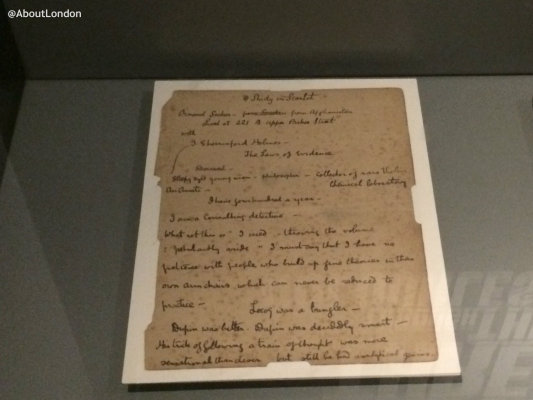 @AboutLondon
A Study in Scarlet
Ormond Sacker - from Soudan from Afghanistan
Lived at 221 B Upper Baker Street
with
I Sherrinford Holmes -
The Laws of Evidence
Reserved -
Sleepy eyed young man - philosopher - Collector of rare Violins
An Amati - Chemical laboratory
I have four hundred a year -
I am a Consulting detective -
What rot this is" I cried - throwing the volume
: petulantly aside " I must say that I have no
patience with people who build up fine theories in their
own armchairs which can never be reduced to
practice -
Lecoq was a bungler -
Dupin was better. Dupin was decidedly smart -
His trick of following a train of thought was more
sensational than clever but still he had analytical genius.